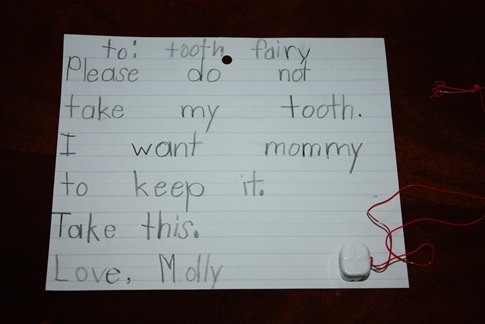 to: tooth fairy
Please do not
take my tooth.
I want mommy
to keep it.
Take this.
Love, Molly